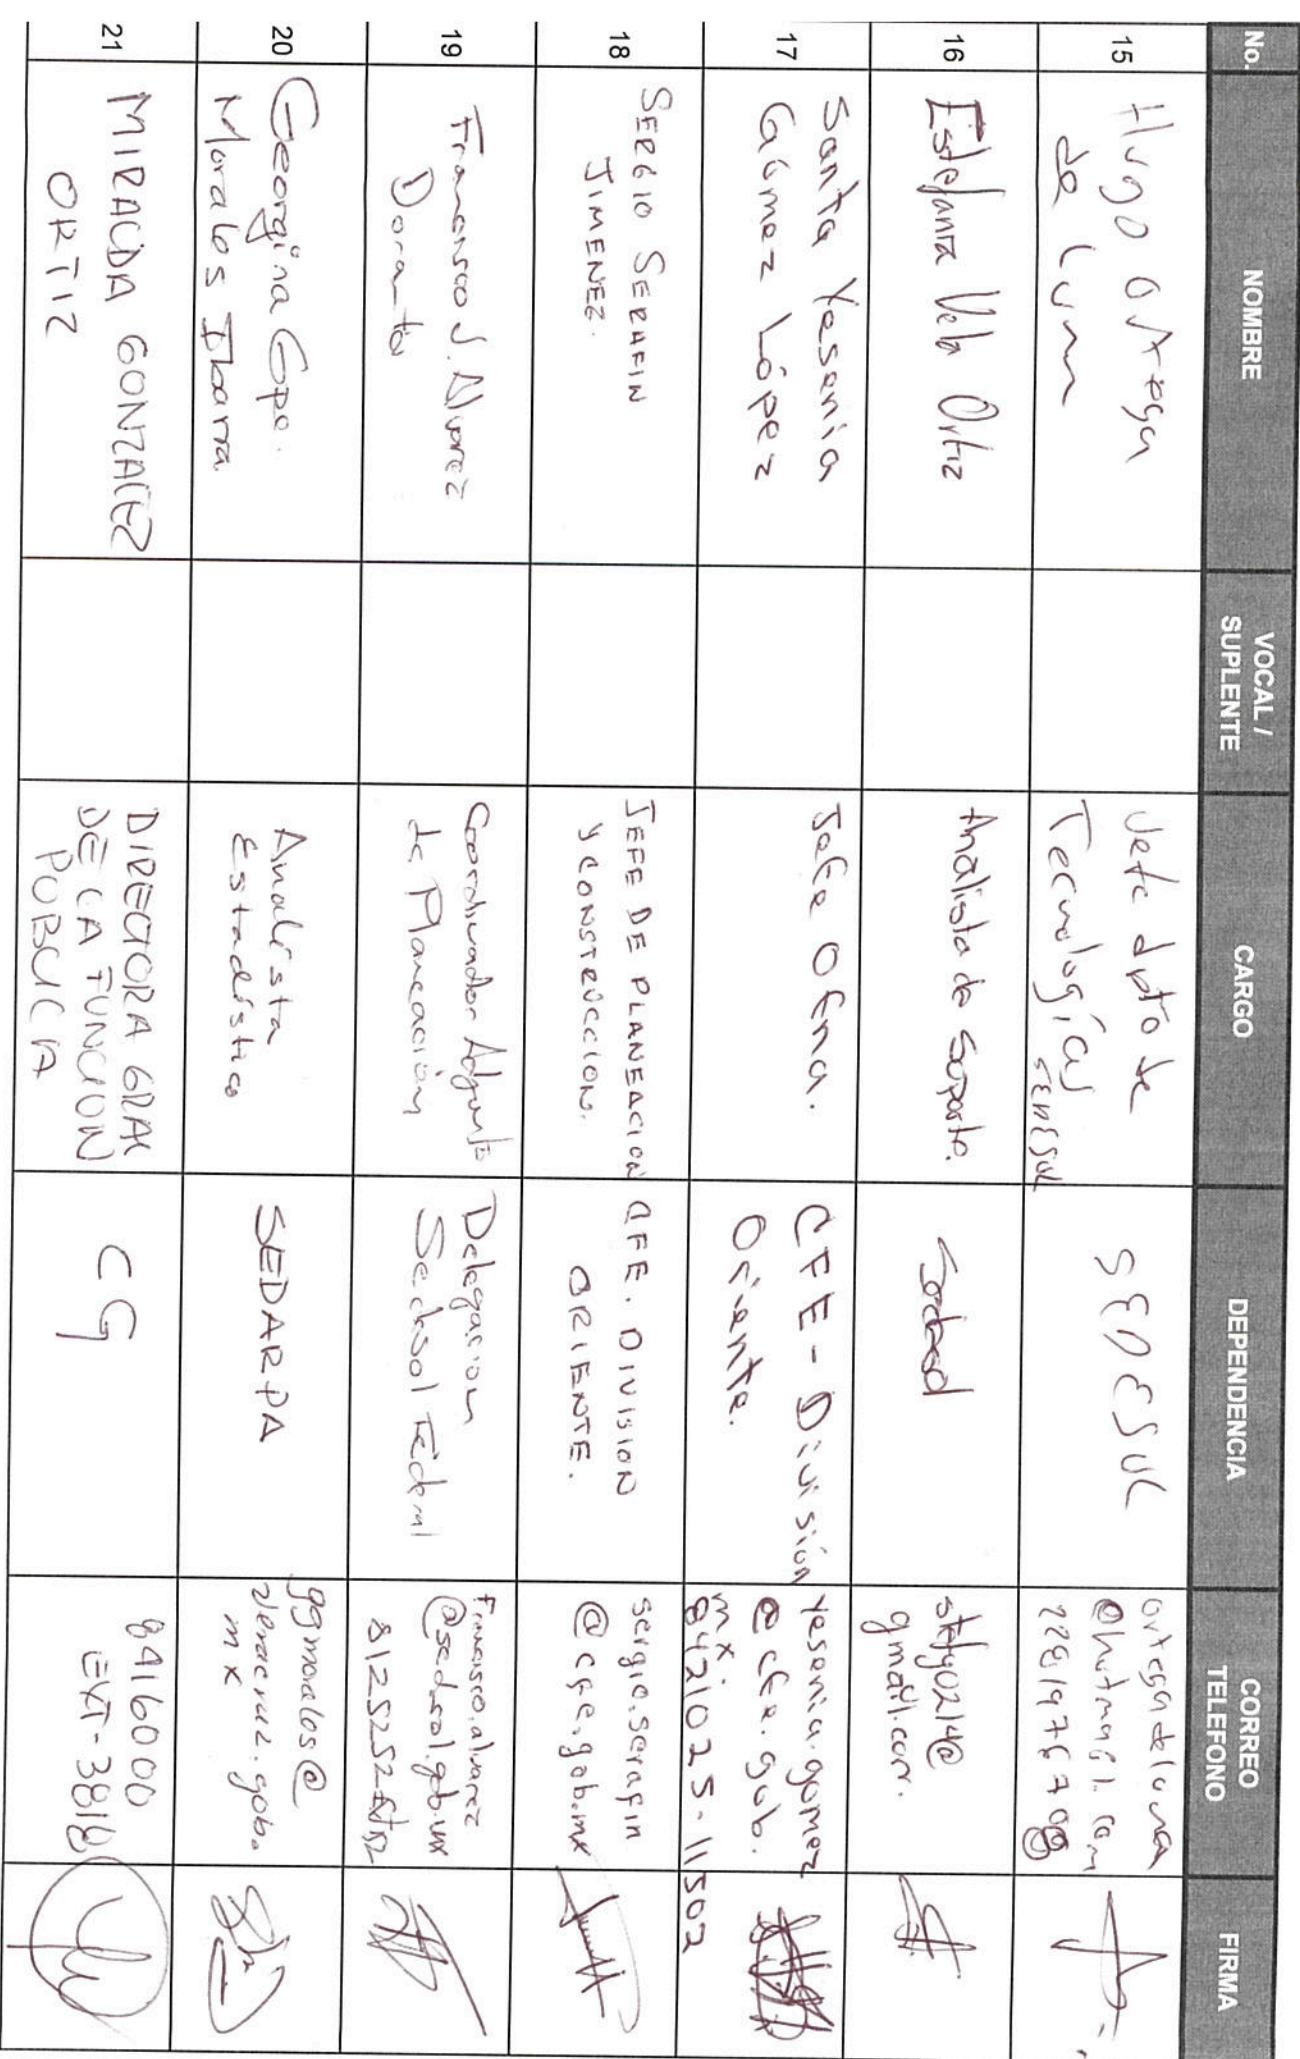 No.
NOMBRE
VOCAL /
SUPLENTE
CARGO
DEPENDENCIA
CORREO
TELEFONO
FIRMA
15
Hugo Ortega
de Luna
Jefe dpto de
Tecnologías
SEDESOL
SEDESOL
ortegadeluna
@hotmail.com
16
Estefanía Vela Ortiz
Analista de Soporte.
Sedesol
stefy0214@
gmail.com.
17
Santa Yesenia
Gómez López
Jefe Ofna.
CFE - División
Oriente.
yesenia.gomez
@cfe.gob.
mx
8421025-11502
18
SERGIO SERAFIN
JIMENEZ.
JEFE DE PLANEACION
Y CONSTRUCCION.
CFE. DIVISION
ORIENTE.
sergio.serafin
@cfe.gob.mx
19
Francisco J. Alvarez
Dorantes
Coordinador Adjunto
de Planeación
Delegación
Sedesol Federal
francisco.alvarez
@sedesol.gob.mx
20
Georgina Gpe.
Morales Ibarra
Analista
Estadístico
SEDARPA
ggmorales@
veracruz.gob.
mx
21
MIRALDA GONZALEZ
ORTIZ
DIRECTORA GRAL
DE LA FUNCION
PUBLICA
CG
8416000
EXT-3818